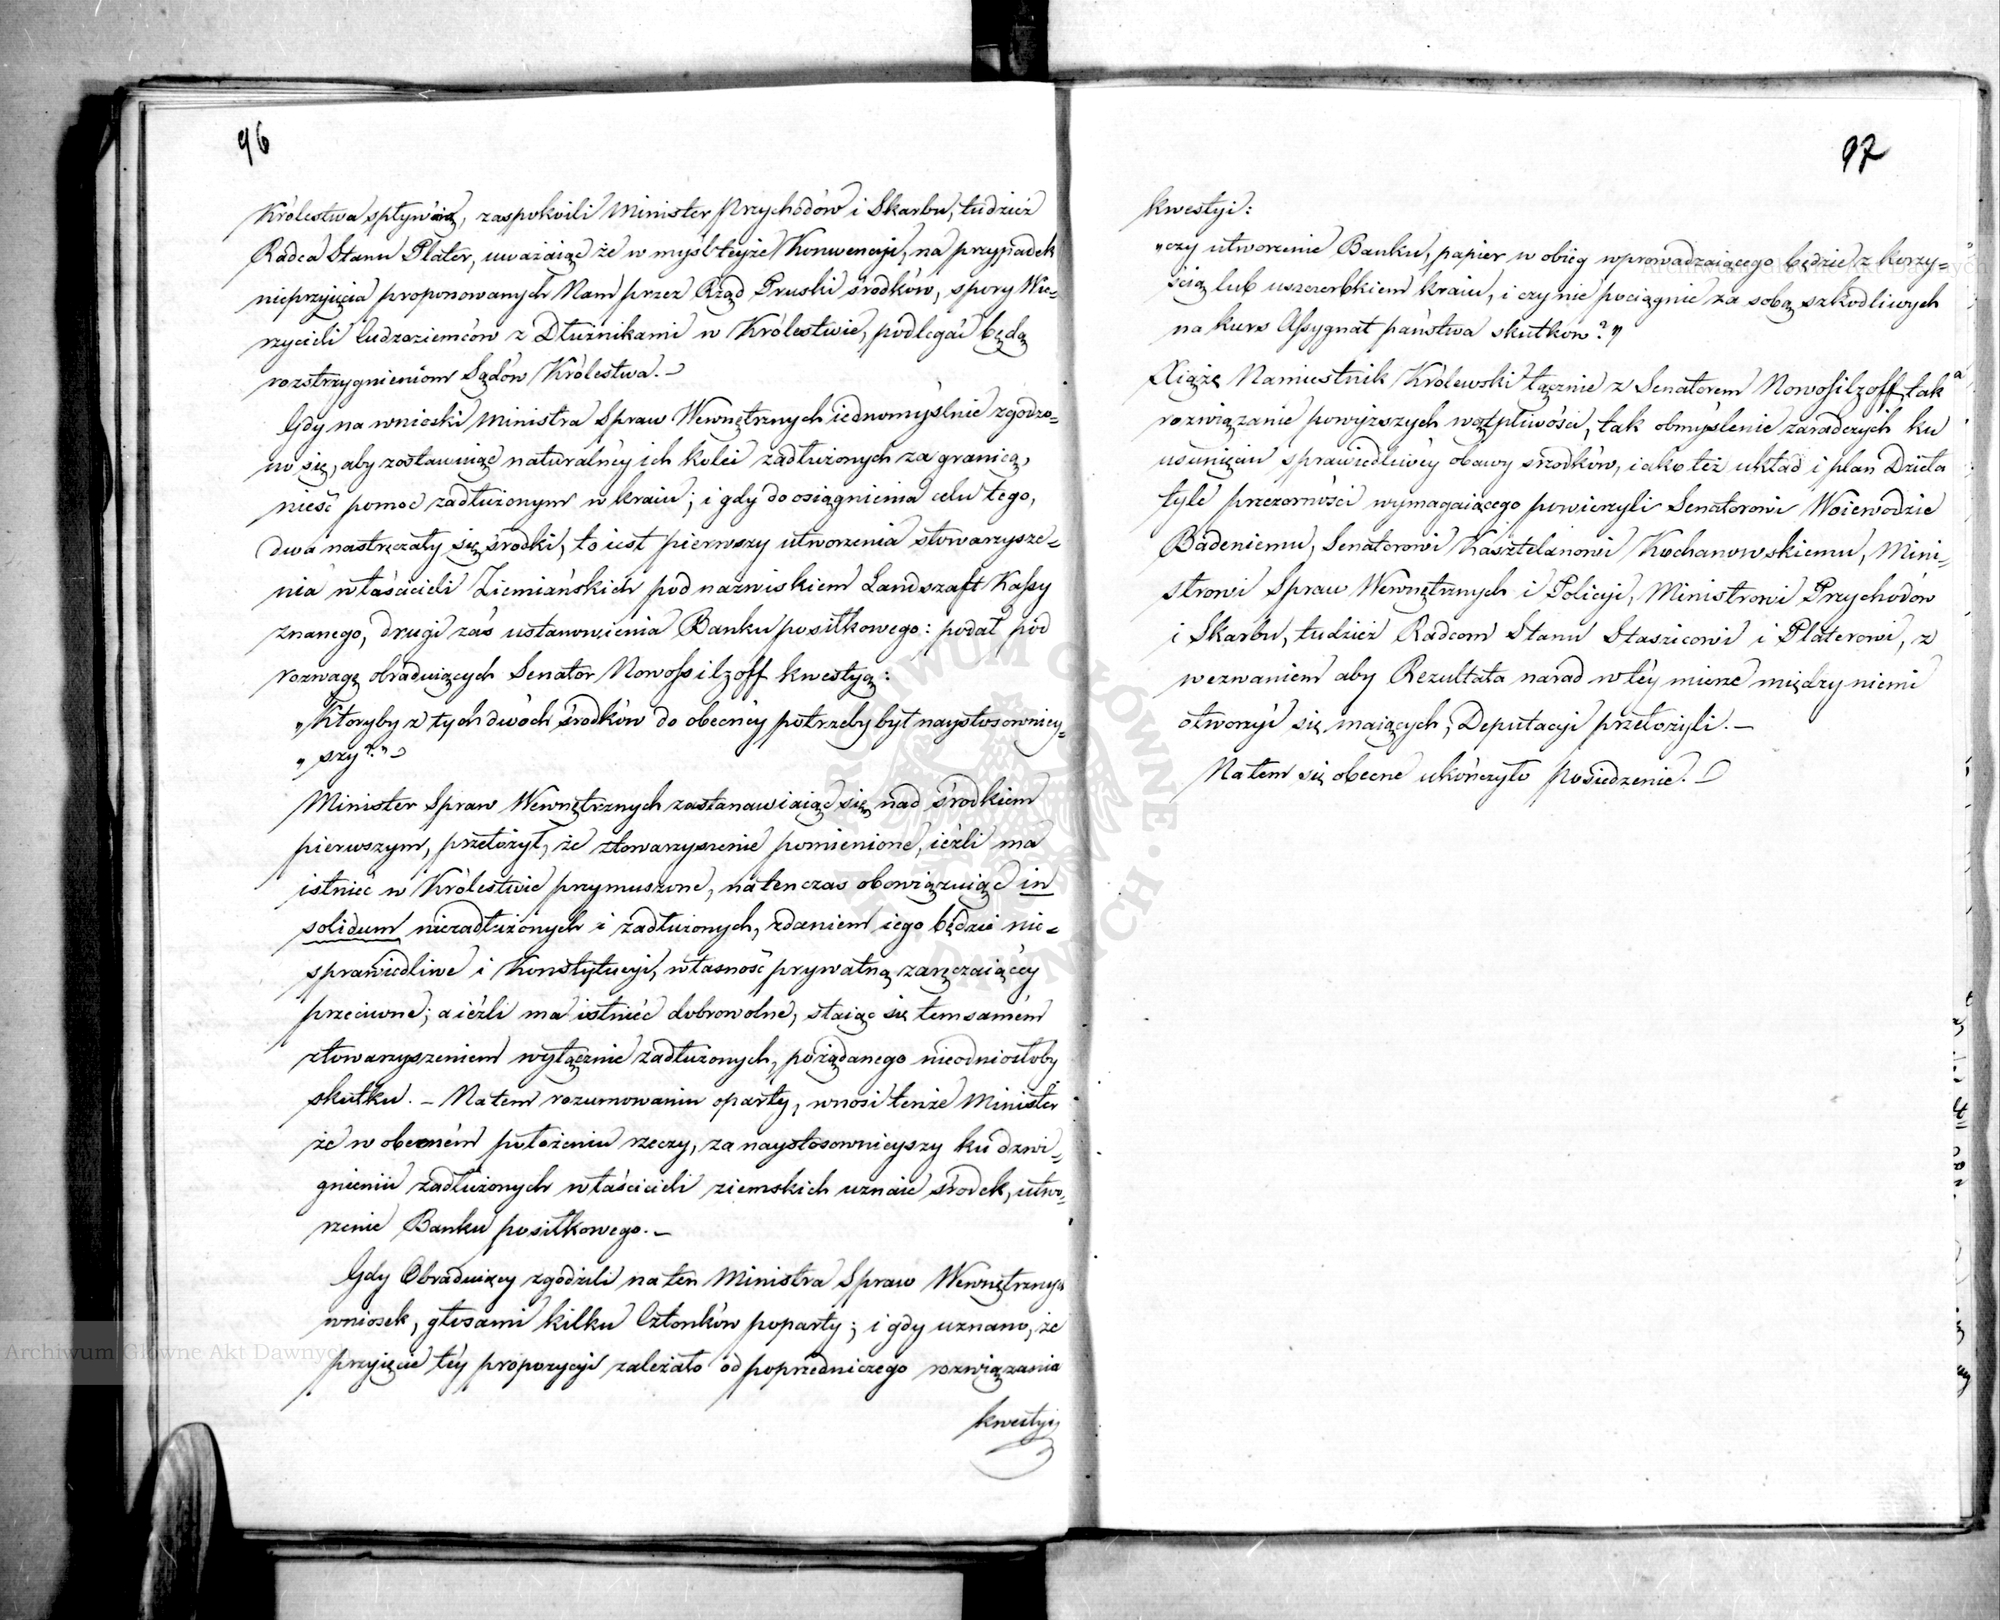 96
Królestwa spływaią, zaspokoili Minister Przychodów i Skarbu, tudzież
Radca Stanu Plater, uważaiąc że w myśl teyże Konwencyi, na przypadek
nieprzyięcia proponowanych Nam przez Rząd Pruski środków, spory Wie=
rzycieli Cudzoziemców z Dłużnikami w Królestwie, podlegać będą
rozstrzygnieniom Sądów Królestwa. —
Gdy na wnioski Ministra Spraw Wewnętrznych iednomyślnie zgodzo=
no się, aby zostawuiąc naturalney ich kolei zadłużonych za granicą,
nieść pomoc zadłużonym w kraiu; i gdy do osiągnienia celu tego,
dwa nastręczały się środki, to iest pierwszy utworzenia stowarzysze=
nia właścicieli Ziemiańskich pod nazwiskiem Landszaft Kassy
znanego, drugi zaś ustanowienia Banku posiłkowego: podał pod
rozwagę obraduiących Senator Nowossilzoff kwestyą:
„Któryby z tych dwóch środków do obecney potrzeby był naystosowniey=
„szy?” —
Minister Spraw Wewnętrznych zastanawiaiąc się nad środkiem
pierwszym, przełożył, że stowarzyszenie pomienione, ieżli ma
istnieć w Królestwie przymuszone, natenczas obowiązuiąc in
solidum niezadłużonych i zadłużonych, zdaniem iego będzie nie=
sprawiedliwe i Konstytucyi, własność prywatną zaręczaiącey
przeciwne; a ieżli ma istnieć dobrowolne, staiąc się temsamém
stowarzyszeniem wyłącznie zadłużonych, pożądanego nieodniosłoby
skutku. — Na tem rozumowaniu oparty, wnosi tenże Minister
że w obecném położeniu rzeczy, za naystosownieyszy ku dzwi=
gnieniu zadłużonych właścicieli ziemskich uznaie środek, utwo=
rzenie Banku posiłkowego. —
Gdy Obraduiący zgodzili na ten Ministra Spraw Wewnętrznych
wniosek, głosami kilku Członków poparty; i gdy uznano, że
przyięcie téy propozycyi zależało od poprzedniczego rozwiązania
kwestyi
97
kwestyi:
„czy utworzenie Banku, papier w obieg wprowadzaiącego będzie z korzy=
ścią lub uszczerbkiem kraiu, i czy nie pociągnie za sobą szkodliwych
na kurs Assygnat państwa skutków?”
Xiążę Namiestnik Królewski łącznie z Senatorem Nowosilzoff, tak
rozwiązanie powyższych wątpliwości, tak obmyślenie zaradczych ku
usunięciu sprawiedliwéy obawy srzodków, iako też układ i plan Dzieła
tyle przezorności wymagaiącego powierzyli Senatorowi Woiewodzie
Badeniemu, Senatorowi Kasztelanowi Kochanowskiemu, Mini=
strowi Spraw Wewnętrznych i Policyi, Ministrowi Przychodów
i Skarbu, tudzież Radcom Stanu Staszicowi i Platerowi, z
wezwaniem aby Rezultata narad w téy mierze między niemi
otworzyć się maiących, Deputacyi przełożyli. —
Na tem się obecne ukończyło posiedzenie. —
Archiwum Główne Akt Dawnych
Archiwum Główne Akt Dawnych
ARCHIWUM GŁÓWNE AKT DAWNYCH